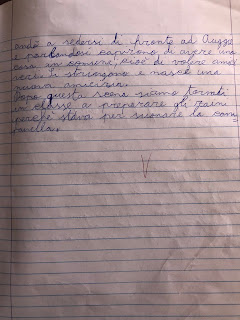 andò a sedersi di fronte ad Auggie
e parlandosi capirono di avere una
cosa in comune, cioè di volere amici
veri, si stringono e nasce una
nuova amicizia.
Dopo questa scena siamo tornati
in classe a preparare gli zaini
perché stava per suonare la cam
panella.
V